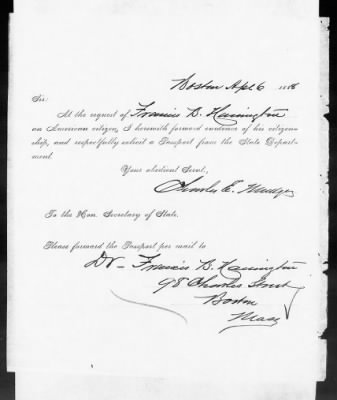 Boston Apl 6 1888
Sir
At the request of Francis B. Harrington
an American citizen, I herewith forward evidence of his citizen-
ship, and respectfully solicit a Passport from the State Depart-
ment.
Your obedient Servt,
Charles E.
To the Hon. Secretary of State.
Please forward the Passport per mail to
Dr - Francis B. Harrington
98 Charles Street
Boston
Mass